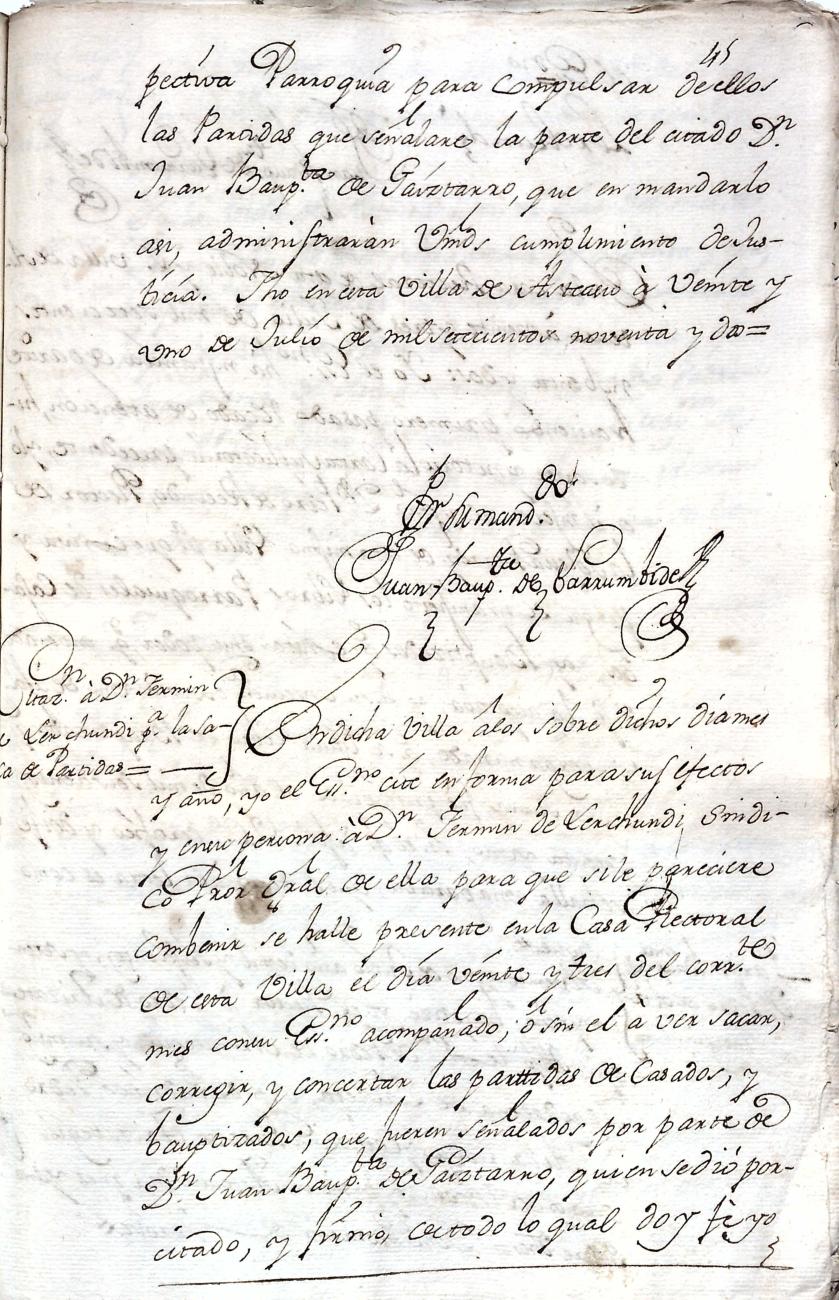 45
pectiva Parroquia para compulsar de ellos
las Partidas que señalare la parte del citado Dn.
Juan Baup.ta de Gaiztarro, que en mandarlo
asi, administraràn Vmds cumplimiento de Jus-
ticia. Fho en esta Villa de Asteasu à Veinte y
uno de Julio de mil setecientos noventa y dos=
Por su mand.do
Juan Baup.ta de Larrumbide
Citaz.n à Dn. Fermin
Lerchundi p.a la sa-
ca de Partidas=
En dicha Villa a los sobre dichos dia mes
y año, yo el Ess.no cité en forma para sus efectos
y en su persona à Dn. Fermin de Lerchundi Sindi-
co Pror Gral de ella para que si le pareciere
combenir se halle presente en la Casa Rectoral
de esta Villa el dia veinte y tres del corr.te
mes con su Ess.no acompañado, ó sin el à ver sacar,
corregir, y concertar las parttidas de Casados, y
bauptizados, que fueren señalados por parte de
Dn. Juan Baup.ta de Gaiztarro, quien se dió por
citado, y firmó, de todo lo qual doy fè yo